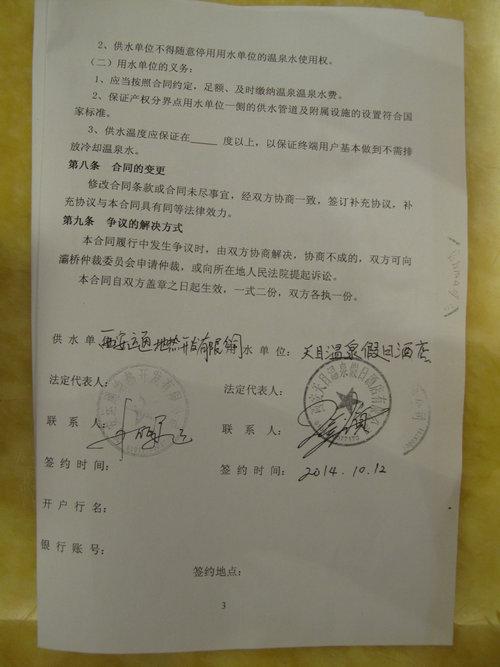 2、供水单位不得随意停用用水单位的温泉水使用权。
（二）用水单位的义务：
1、应当按照合同约定，足额、及时缴纳温泉温泉水费。
2、保证产权分界点用水单位一侧的供水管道及附属设施的设置符合国
家标准。
3、供水温度应保证在_____ 度以上，以保证终端用户基本做到不需排
放冷却温泉水。
第八条 合同的变更
修改合同条款或合同未尽事宜，经双方协商一致，签订补充协议，补
充协议与本合同具有同等法律效力。
第九条 争议的解决方式
本合同履行中发生争议时，由双方协商解决，协商不成的，双方可向
灞桥仲裁委员会申请仲裁，或向所在地人民法院提起诉讼。
本合同自双方盖章之日起生效，一式二份，双方各执一份。
供水单 西安运通地热开发有限公司 水单位：天目温泉假日酒店
法定代表人： 法定代表人：
联系人： 联系人：
签约时间： 签约时间：2014.10.12
开户行名：
银行账号：
签约地点：
3